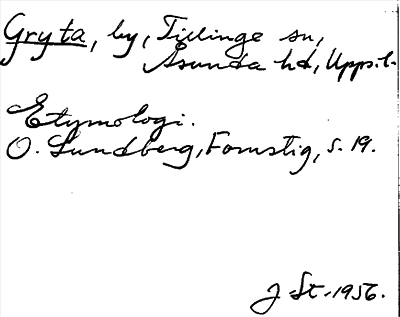 Gryta, by, Tillinge sn,
Åsunda hd, Upps.l.
Etymologi.
O. Lundberg, Fornstig, s. 19.
J St. 1956.